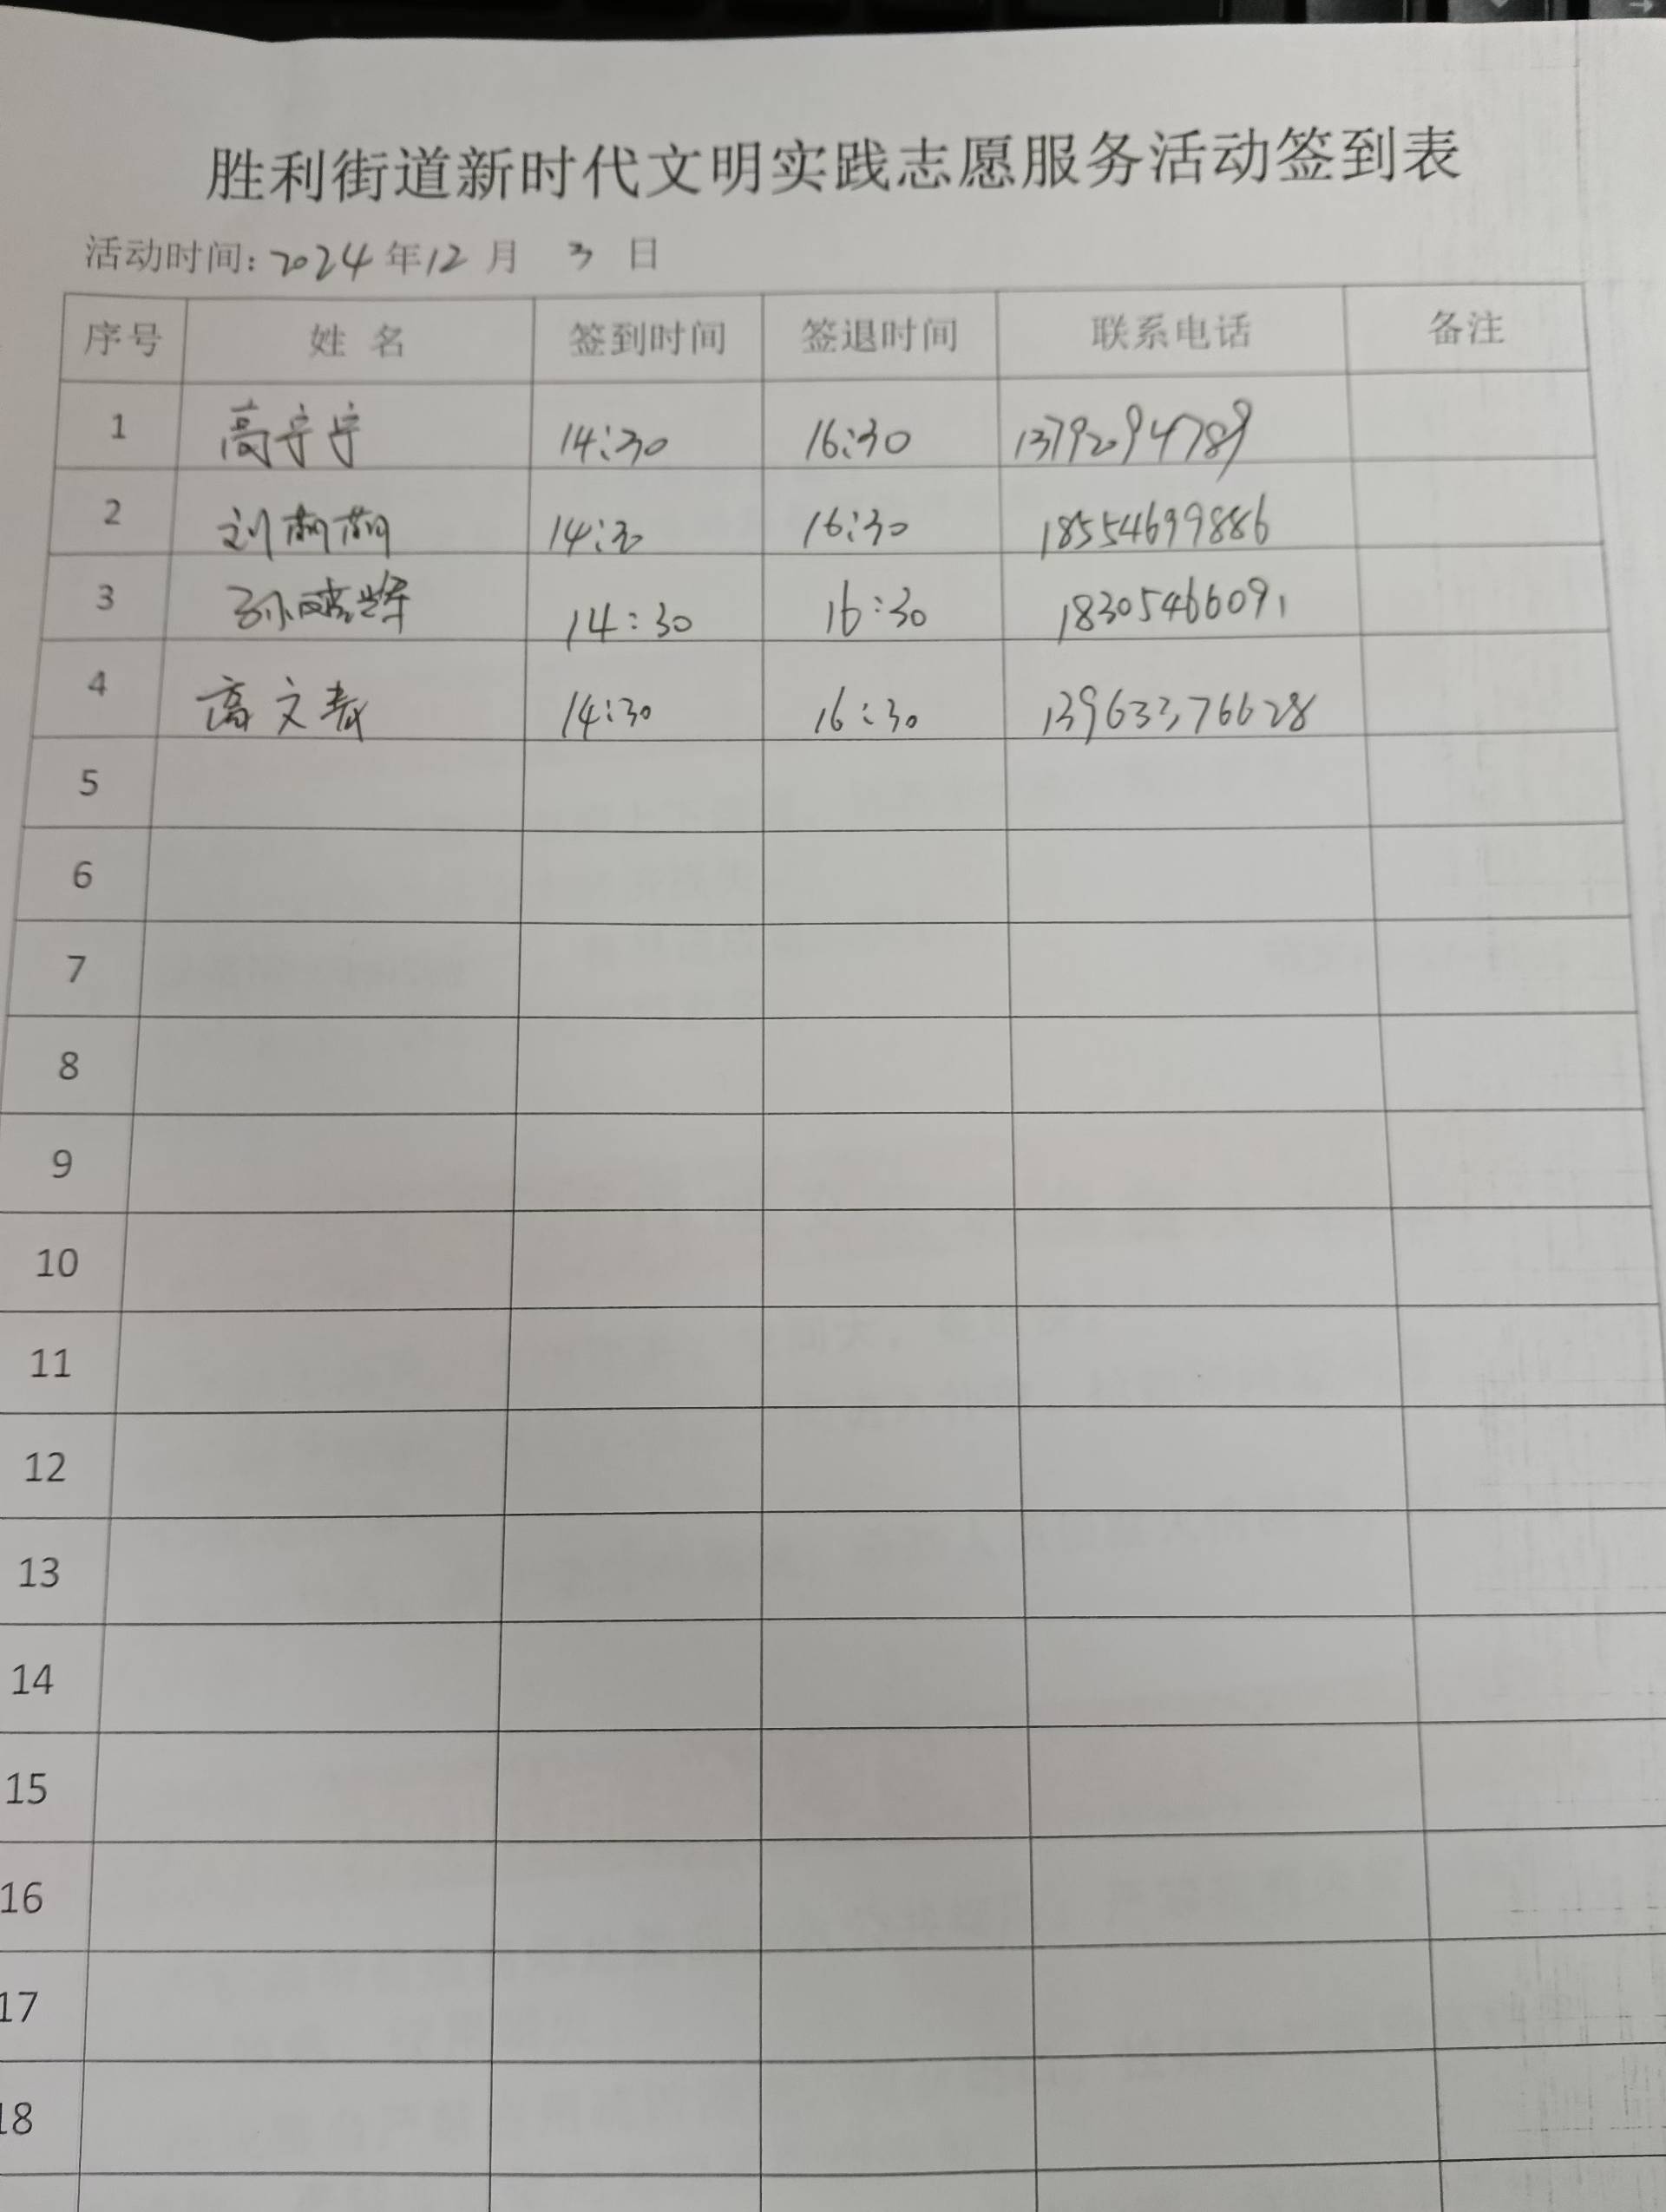 胜利街道新时代文明实践志愿服务活动签到表
活动时间: 2024 年 12 月 3 日
序号 姓 名 签到时间 签退时间 联系电话 备注
1 高宁宁 14:30 16:30 13792094789
2 刘 14:30 16:30 18554699886
3 孙 14:30 16:30 18305466091
4 高文春 14:30 16:30 13963376628
5
6
7
8
9
10
11
12
13
14
15
16
17
18